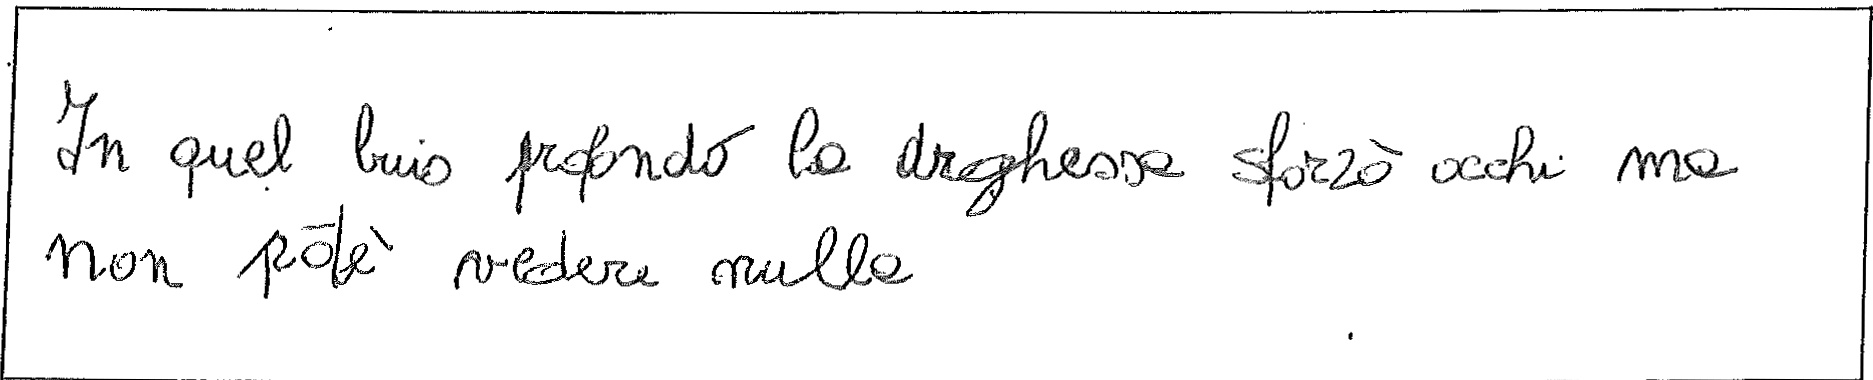 In quel buio profondo la draghessa sforzò occhi ma
non potè vedere nulla